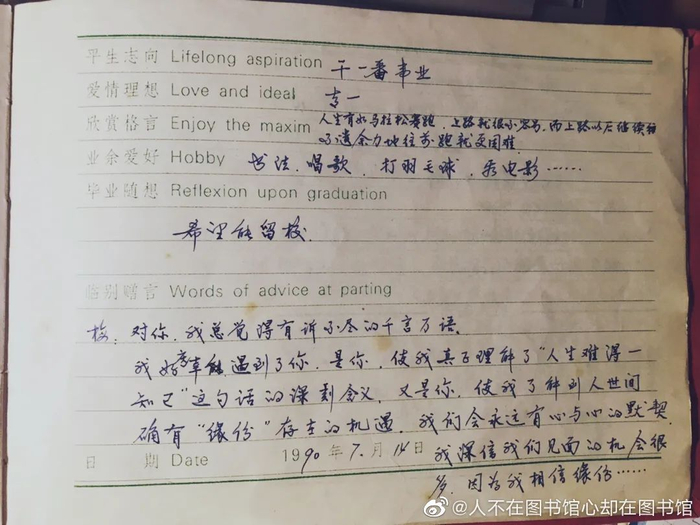 平生志向 Lifelong aspiration 干一番事业
爱情理想 Love and ideal 专一
欣赏格言 Enjoy the maxim 人生有如马拉松赛跑，上路就很不容易，而上路以后继续
不遗余力地往前跑就更困难。
业余爱好 Hobby 书法、唱歌、打羽毛球、看电影……
毕业随想 Reflexion upon graduation
希望能留校。
临别赠言 Words of advice at parting
梅：对你，我总觉得有诉不尽的千言万语。
我好幸能遇到了你，是你，使我真正理解了“人生难得一
知己”这句话的深刻含义，又是你，使我了解到人世间
确有“缘份”存在的机遇。我们会永远有心与心的默契，
日 期 Date 1990年7.14日 我深信我们见面的机会很
多，因为我相信缘份……
@人不在图书馆心却在图书馆